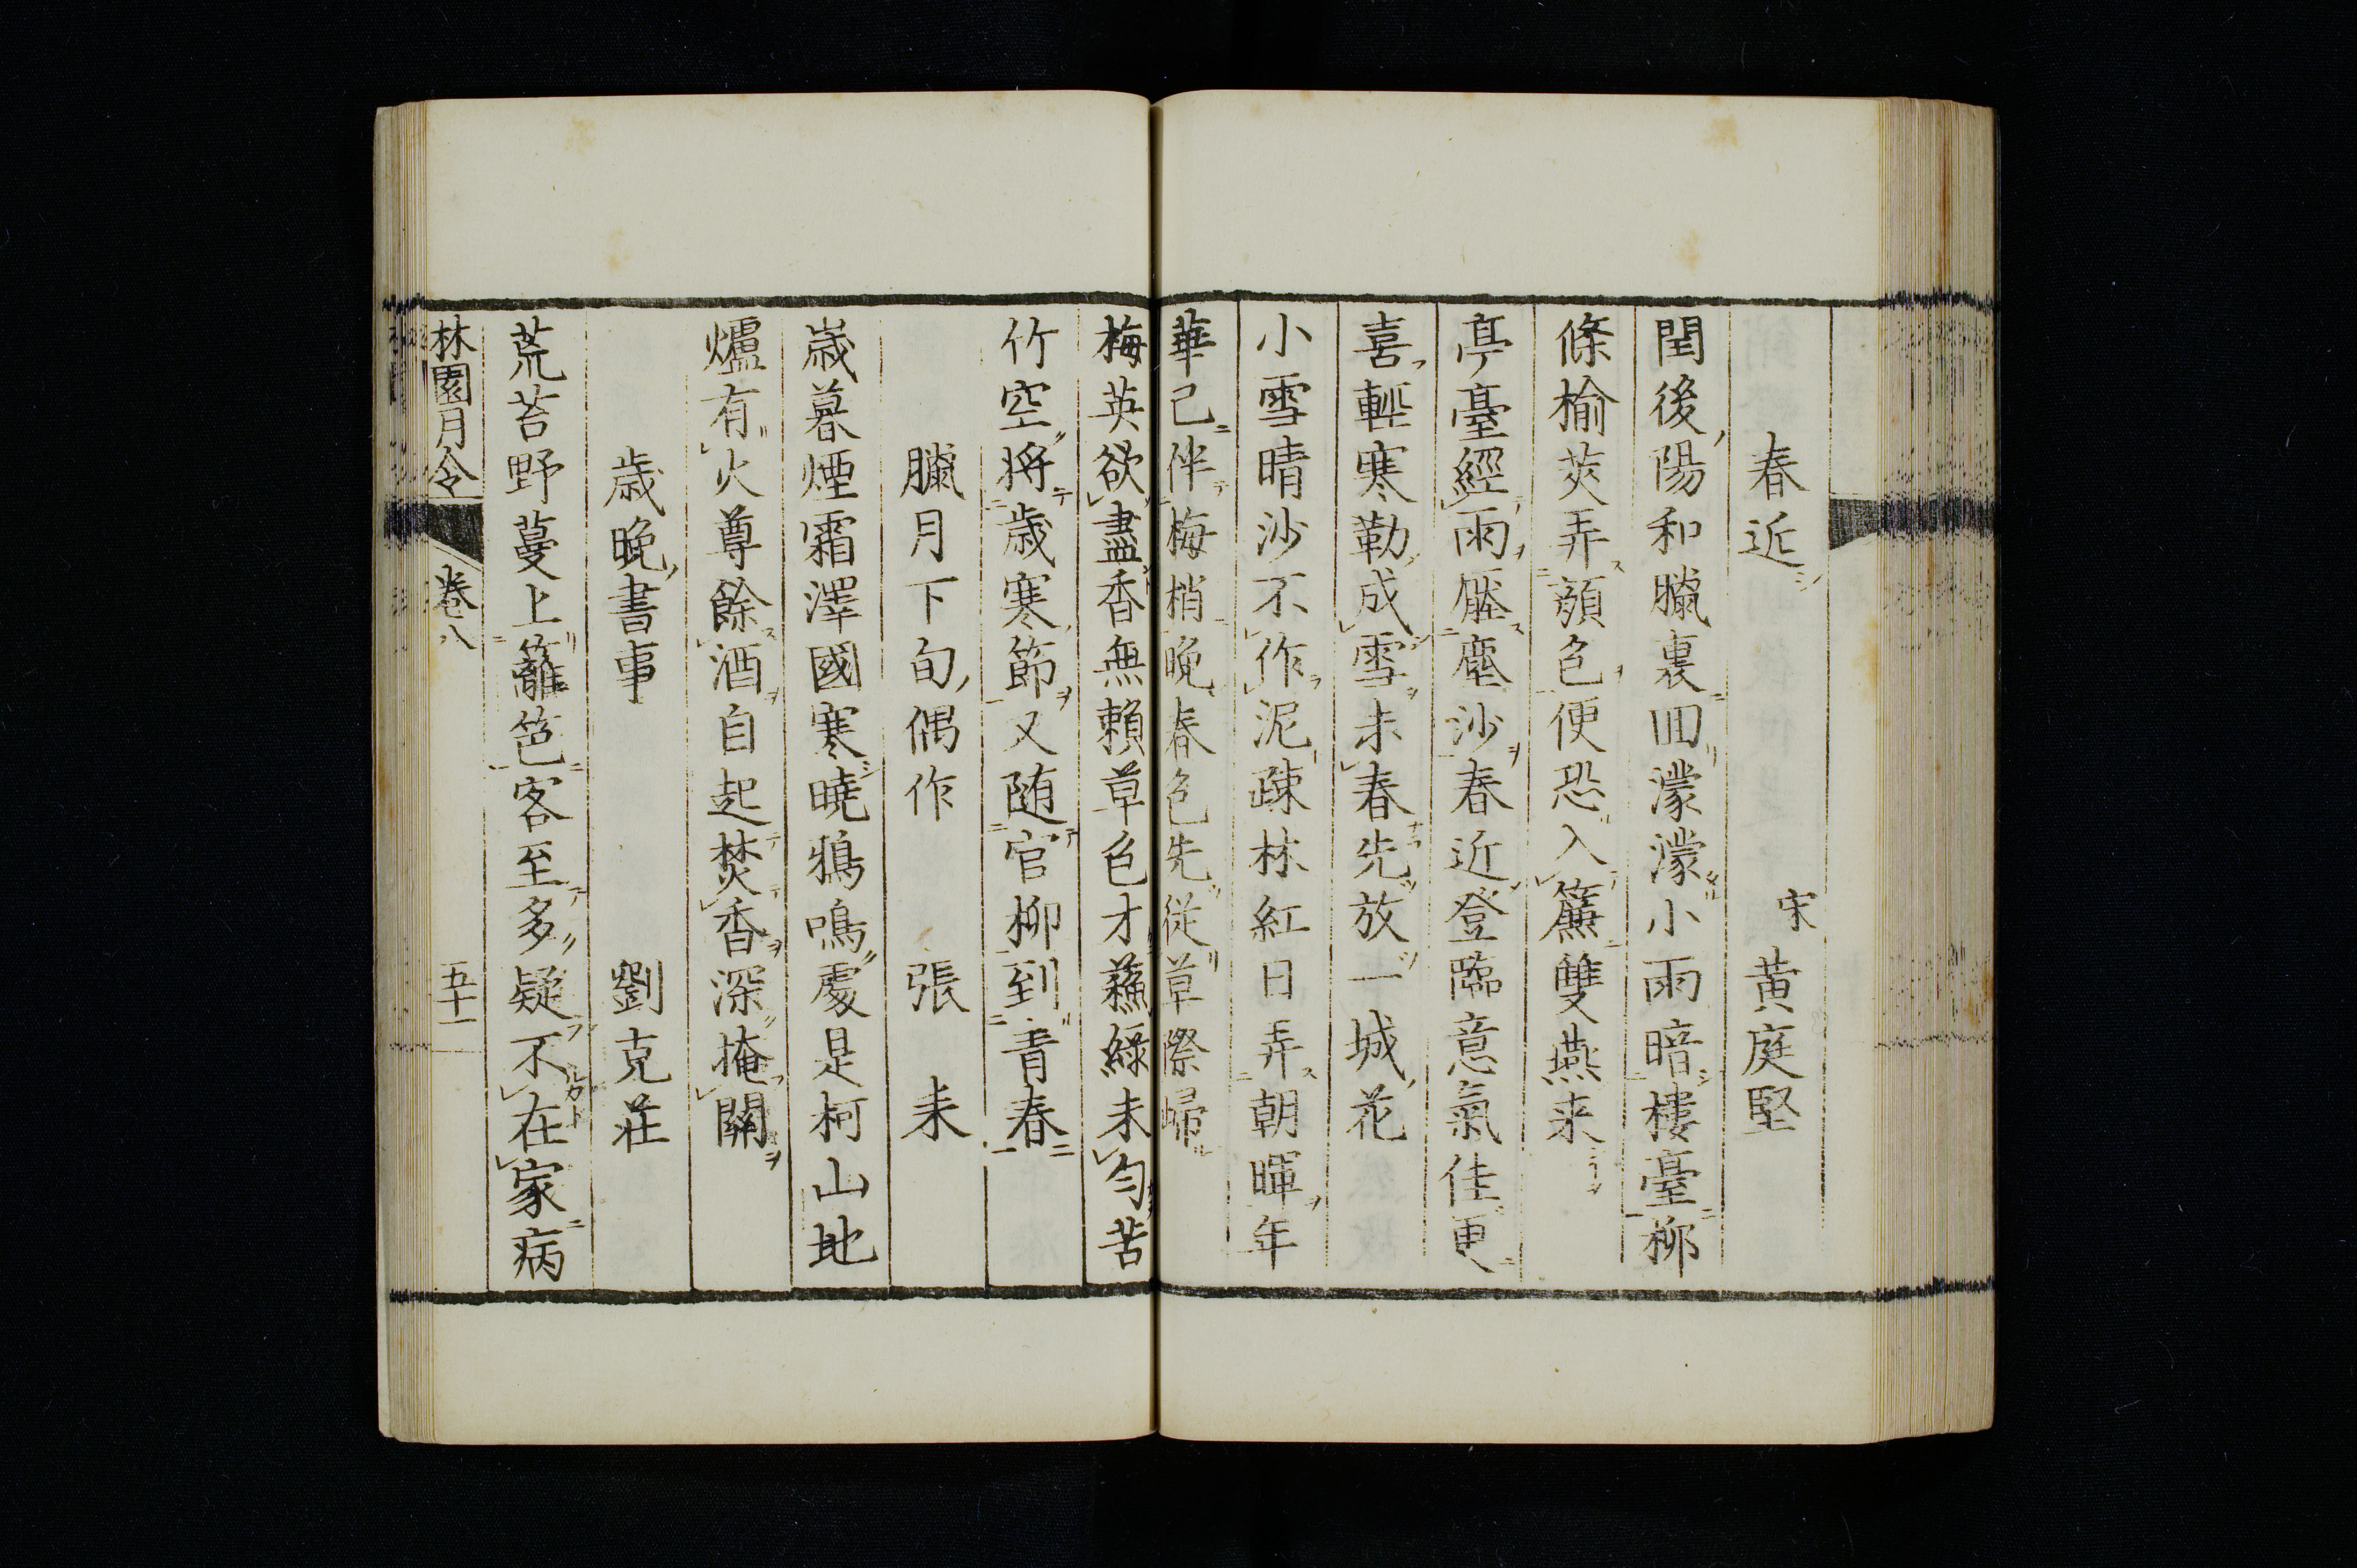 春近 宋 黄庭堅
閏後陽和臘裏囬濛濛小雨暗樓臺柳
條榆莢弄顔色便恐入簾雙燕来
亭臺經雨壓塵沙春近登臨意氣佳更
喜輕寒勒成雪未春先放一城花
小雪晴沙不作泥疎林紅日弄朝暉年
華已伴梅梢晚春色先従草際歸
梅英欲盡香無賴草色才蘓綠未勻苦
竹空将歲寒節又随官柳到青春
臘月下旬偶作 張耒
歲暮煙霜澤國寒曉鴉鳴處是柯山地
爐有火尊餘酒自起焚香深掩關
歲晚書事 劉克莊
荒苔野蔓上籬笆客至多疑不在家病
林園月令 卷八 五十一